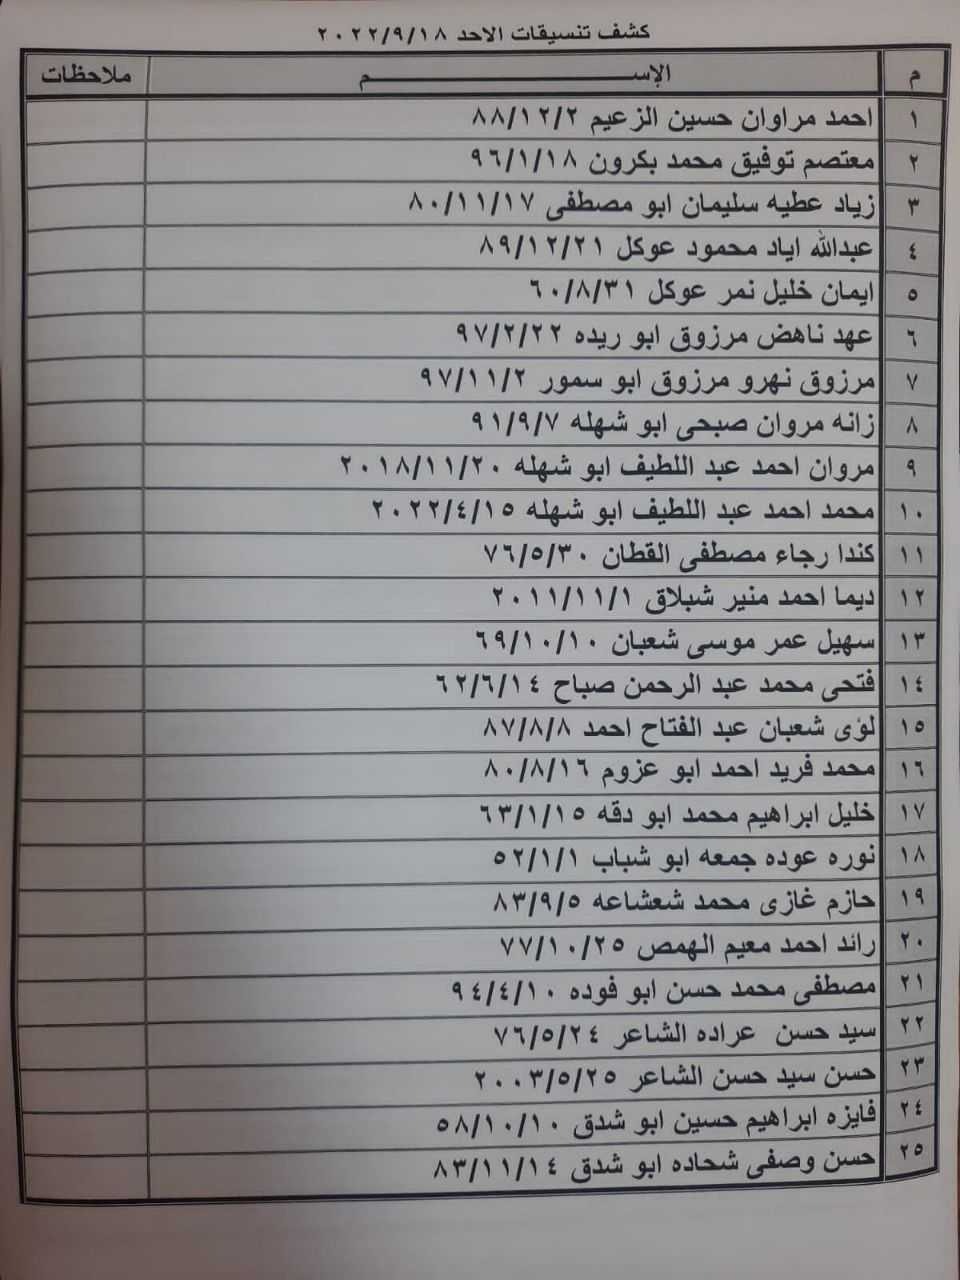 كشف تنسيقات الاحد ٢٠٢٢/٩/١٨
م الإســـــم ملاحظات
١ احمد مراوان حسين الزعيم ٨٨/١٢/٢
٢ معتصم توفيق محمد بكرون ٩٦/١/١٨
٣ زياد عطيه سليمان ابو مصطفى ٨٠/١١/١٧
٤ عبدالله اياد محمود عوكل ٨٩/١٢/٢١
٥ ايمان خليل نمر عوكل ٦٠/٨/٣١
٦ عهد ناهض مرزوق ابو ريده ٩٧/٢/٢٢
٧ مرزوق نهرو مرزوق ابو سمور ٩٧/١١/٢
٨ زانه مروان صبحى ابو شهله ٩١/٩/٧
٩ مروان احمد عبد اللطيف ابو شهله ٢٠١٨/١١/٢٠
١٠ محمد احمد عبد اللطيف ابو شهله ٢٠٢٢/٤/١٥
١١ كندا رجاء مصطفى القطان ٧٦/٥/٣٠
١٢ ديما احمد منير شبلاق ٢٠١١/١١/١
١٣ سهيل عمر موسى شعبان ٦٩/١٠/١٠
١٤ فتحى محمد عبد الرحمن صباح ٦٢/٦/١٤
١٥ لؤى شعبان عبد الفتاح احمد ٨٧/٨/٨
١٦ محمد فريد احمد ابو عزوم ٨٠/٨/١٦
١٧ خليل ابراهيم محمد ابو دقه ٦٣/١/١٥
١٨ نوره عوده جمعه ابو شباب ٥٢/١/١
١٩ حازم غازى محمد شعشاعه ٨٣/٩/٥
٢٠ رائد احمد معيم الهمص ٧٧/١٠/٢٥
٢١ مصطفى محمد حسن ابو فوده ٩٤/٤/١٠
٢٢ سيد حسن عراده الشاعر ٧٦/٥/٢٤
٢٣ حسن سيد حسن الشاعر ٢٠٠٣/٥/٢٥
٢٤ فايزه ابراهيم حسين ابو شدق ٥٨/١٠/١٠
٢٥ حسن وصفى شحاده ابو شدق ٨٣/١١/١٤